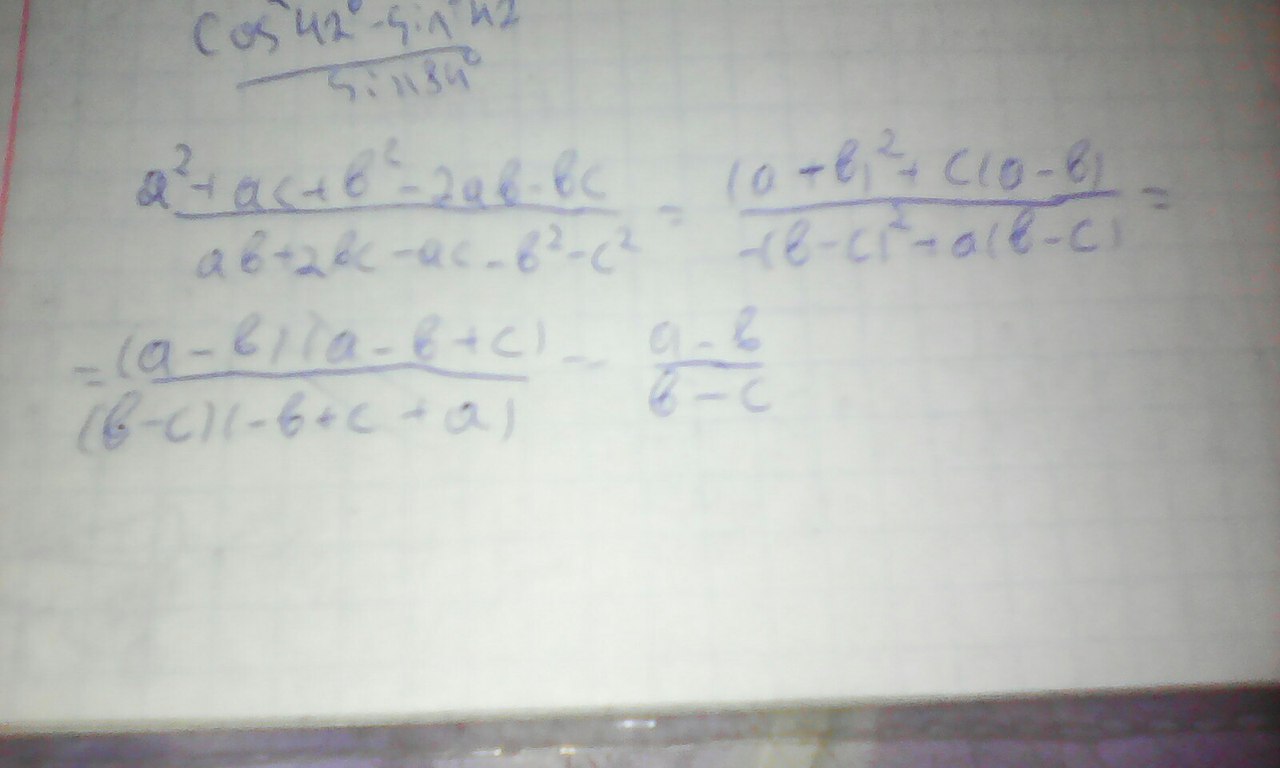 cos²42°-sin²42
sin84°
a²+ac+b²-2ab-bc / ab+2bc-ac-b²-c² = (a+b)²+c(a-b) / -(b-c)²+a(b-c) =
= (a-b)(a-b+c) / (b-c)(-b+c+a) = a-b / b-c